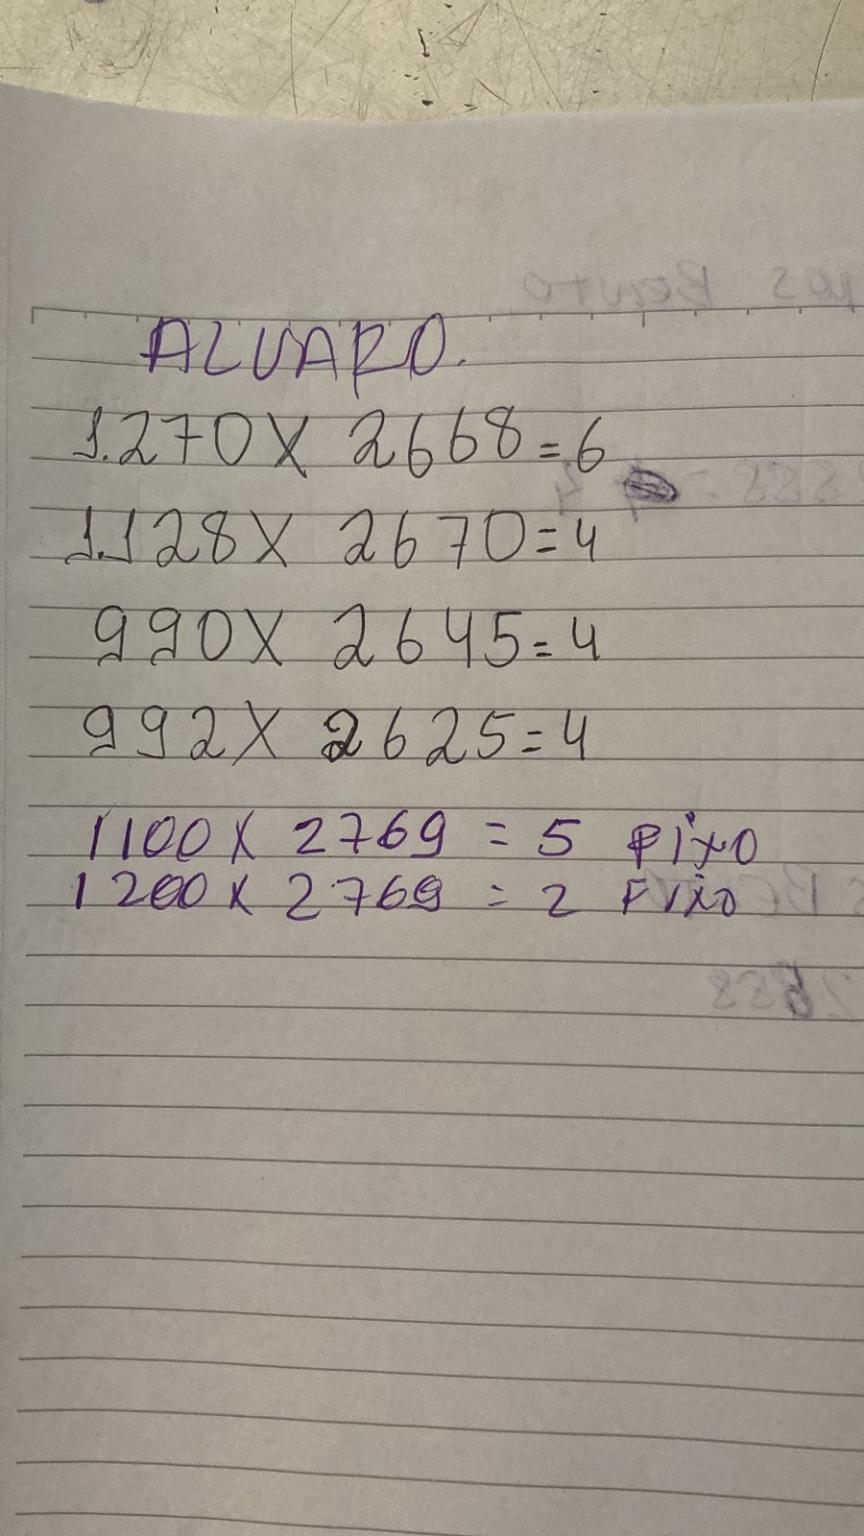 ALVARO.
1.270X 2668=6
1.128X 2670=4
990X 2645=4
992X 2625=4
1100X 2769 = 5 FIXO
1200X 2769 = 2 FIXO